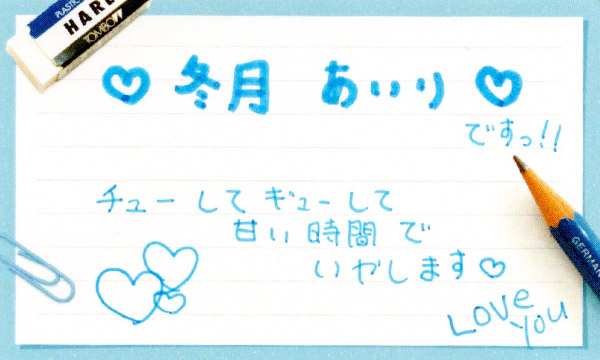 PLASTIC
HARD
TOMBOW
♡ 冬月 あいり ♡
ですっ!!
チューして ギューして
甘い時間で
いやします♡
GERMANY
LOVE
YOU